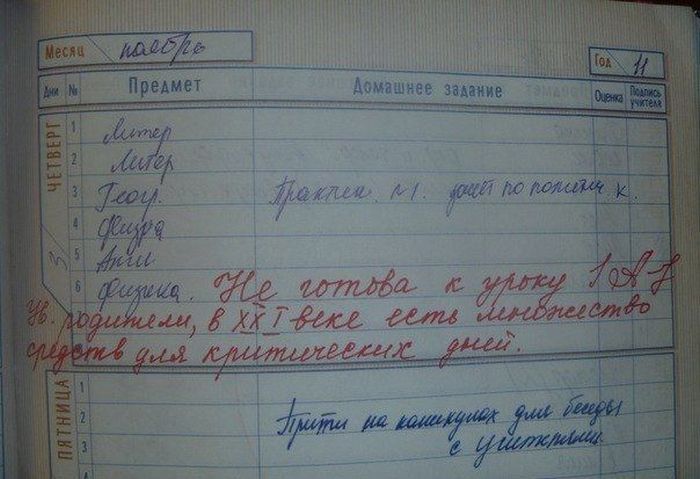 Месяц ноябрь
Год 11
Дни № Предмет Домашнее задание Оценка Подпись учителя
ЧЕТВЕРГ 3
1 Литер
2 Литер
3 Геогр. Практич. №1. по политич. к.
4 Физра
5 Англ
6 Физика. Не готова к уроку
Ув. родители, в XXI веке есть множество
средств для критических дней.
ПЯТНИЦА
1
2 Прийти на каникулах для беседы
3 с учителями
4